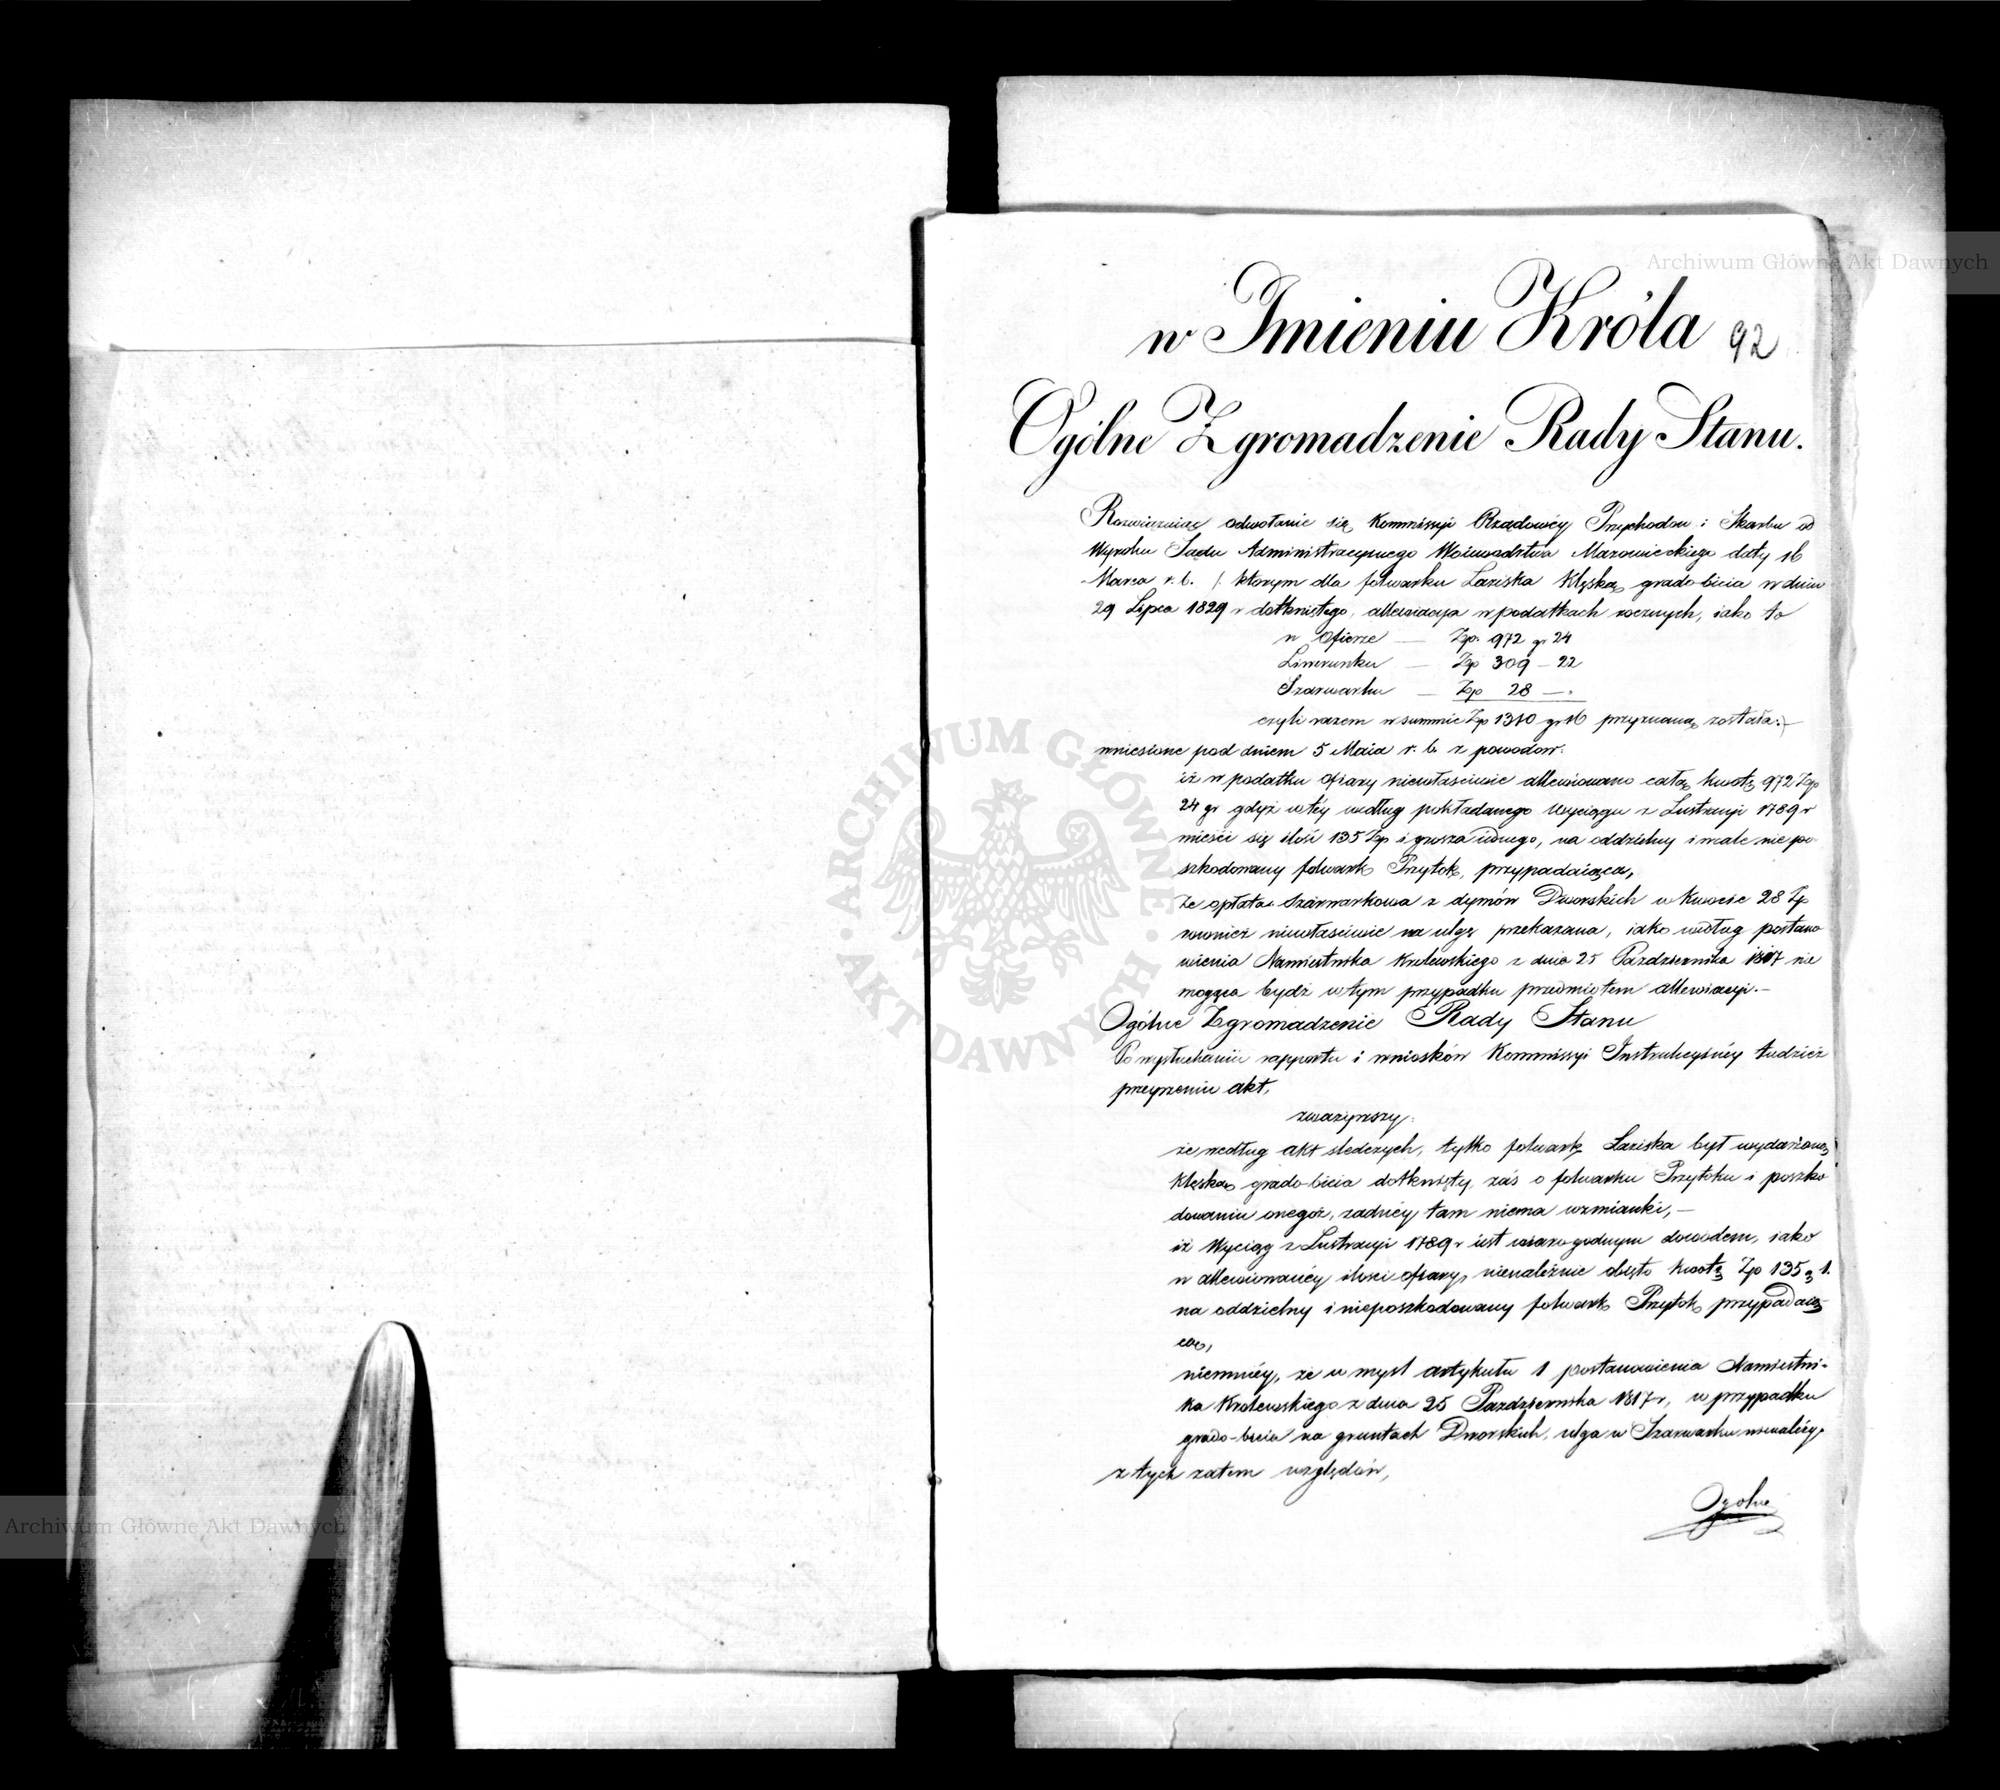 92
w Imieniu Króla
Ogólne Zgromadzenie Rady Stanu.
Rozwiązuiąc odwołanie się Kommissyi Rządowéy Przychodów i Skarbu od
Wyroku Sądu Administracyjnego Woiewództwa Mazowieckiego daty 16
Marca r. b. /: którym dla folwarku Łaziska klęską grado-bicia w dniu
29 Lipca 1829 r dotkniętego, allewiacya w podatkach rocznych, iako to
w Ofierze — Zp. 972 gr 24
Liwerunku — Zp 309 — 22
Szarwarku — Zp 28 — .
czyli razem w summie Zp 1310 gr 16 przyznaną została :/—
wniesione pod dniem 5 Maia r. b. z powodów:
iż w podatku ofiary niewłaściwie allewiowano całą kwotę 972 Zp
24 gr gdyż w téy według pokładanego Wyciągu z Lustracyi 1789 r
mieści się ilość 135 Zp i grosza iednego, na oddzielny i wcale niepo-
szkodowany folwark Przytok, przypadaiąca,
że opłata Szarwarkowa z dymów Dworskich w kwocie 28 Zp
również niewłaściwie na ulgę przekazana, iako według postano
wienia Namiestnika Królewskiego z dnia 25 Października 1817 nie
mogąca bydź w tym przypadku przedmiotem allewiacyi.—
Ogólne Zgromadzenie Rady Stanu
Po wysłuchaniu rapportu i wniosków Kommissyi Instrukcyinéy tudzież
przeyrzeniu akt,
zważywszy:
że według akt śledczych, tylko folwark Łaziska był wydarzoną
klęską grado-bicia dotknięty, zaś o folwarku Przytoku i poszko
dowaniu onegoż, żadnéy tam niema wzmianki,—
iż Wyciąg z Lustracyi 1789 r iest wiarogodnym dowodem, iako
w allewiowanéy ilości ofiary, nienależnie obięto kwotę Zp 135 g 1.
na oddzielny i nieposzkodowany folwark Przytok przypadaią-
cą,
niemniéy, że w myśl artykułu 1 postanowienia Namiestni-
ka Królewskiego z dnia 25 Października 1817 r, w przypadku
grado-bicia na gruntach Dworskich, ulga w Szarwarku nienależy,
z tych zatem względów,
Ogólne